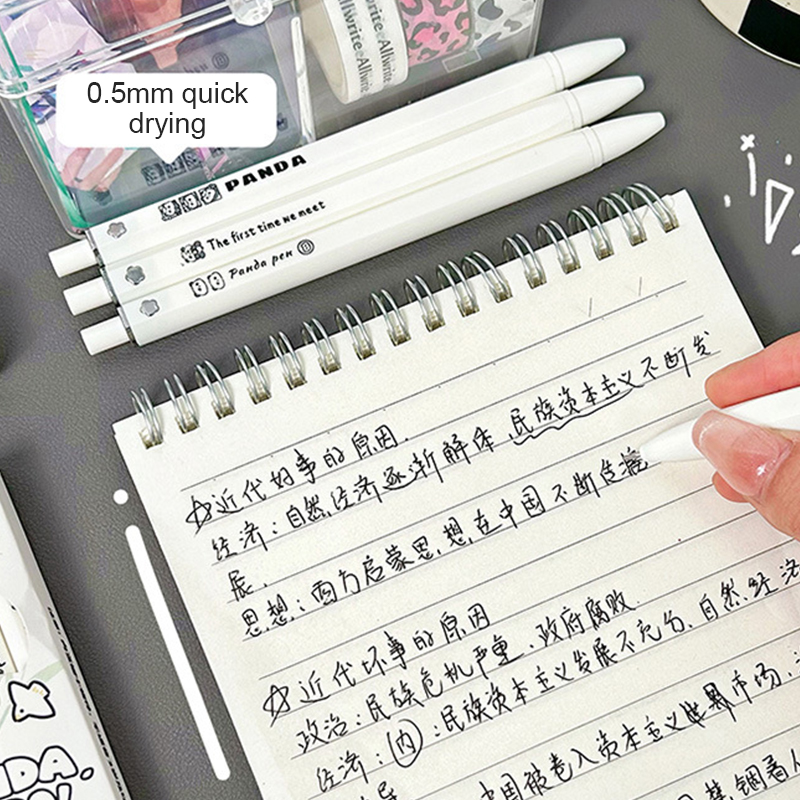 0.5mm quick
drying
Allwrite Allwrite
PANDA
The first time we meet
Panda pen
☆近代好事的原因.
经济:自然经济逐渐解体,民族资本主义不断发
展.
思想:西方启蒙思想在中国不断传
☆近代坏事的原因
政治:民族危机严重、政府腐败.
经济:内:民族资本主义发展不充分、自然经济
中国被卷入资本主义世界市场,